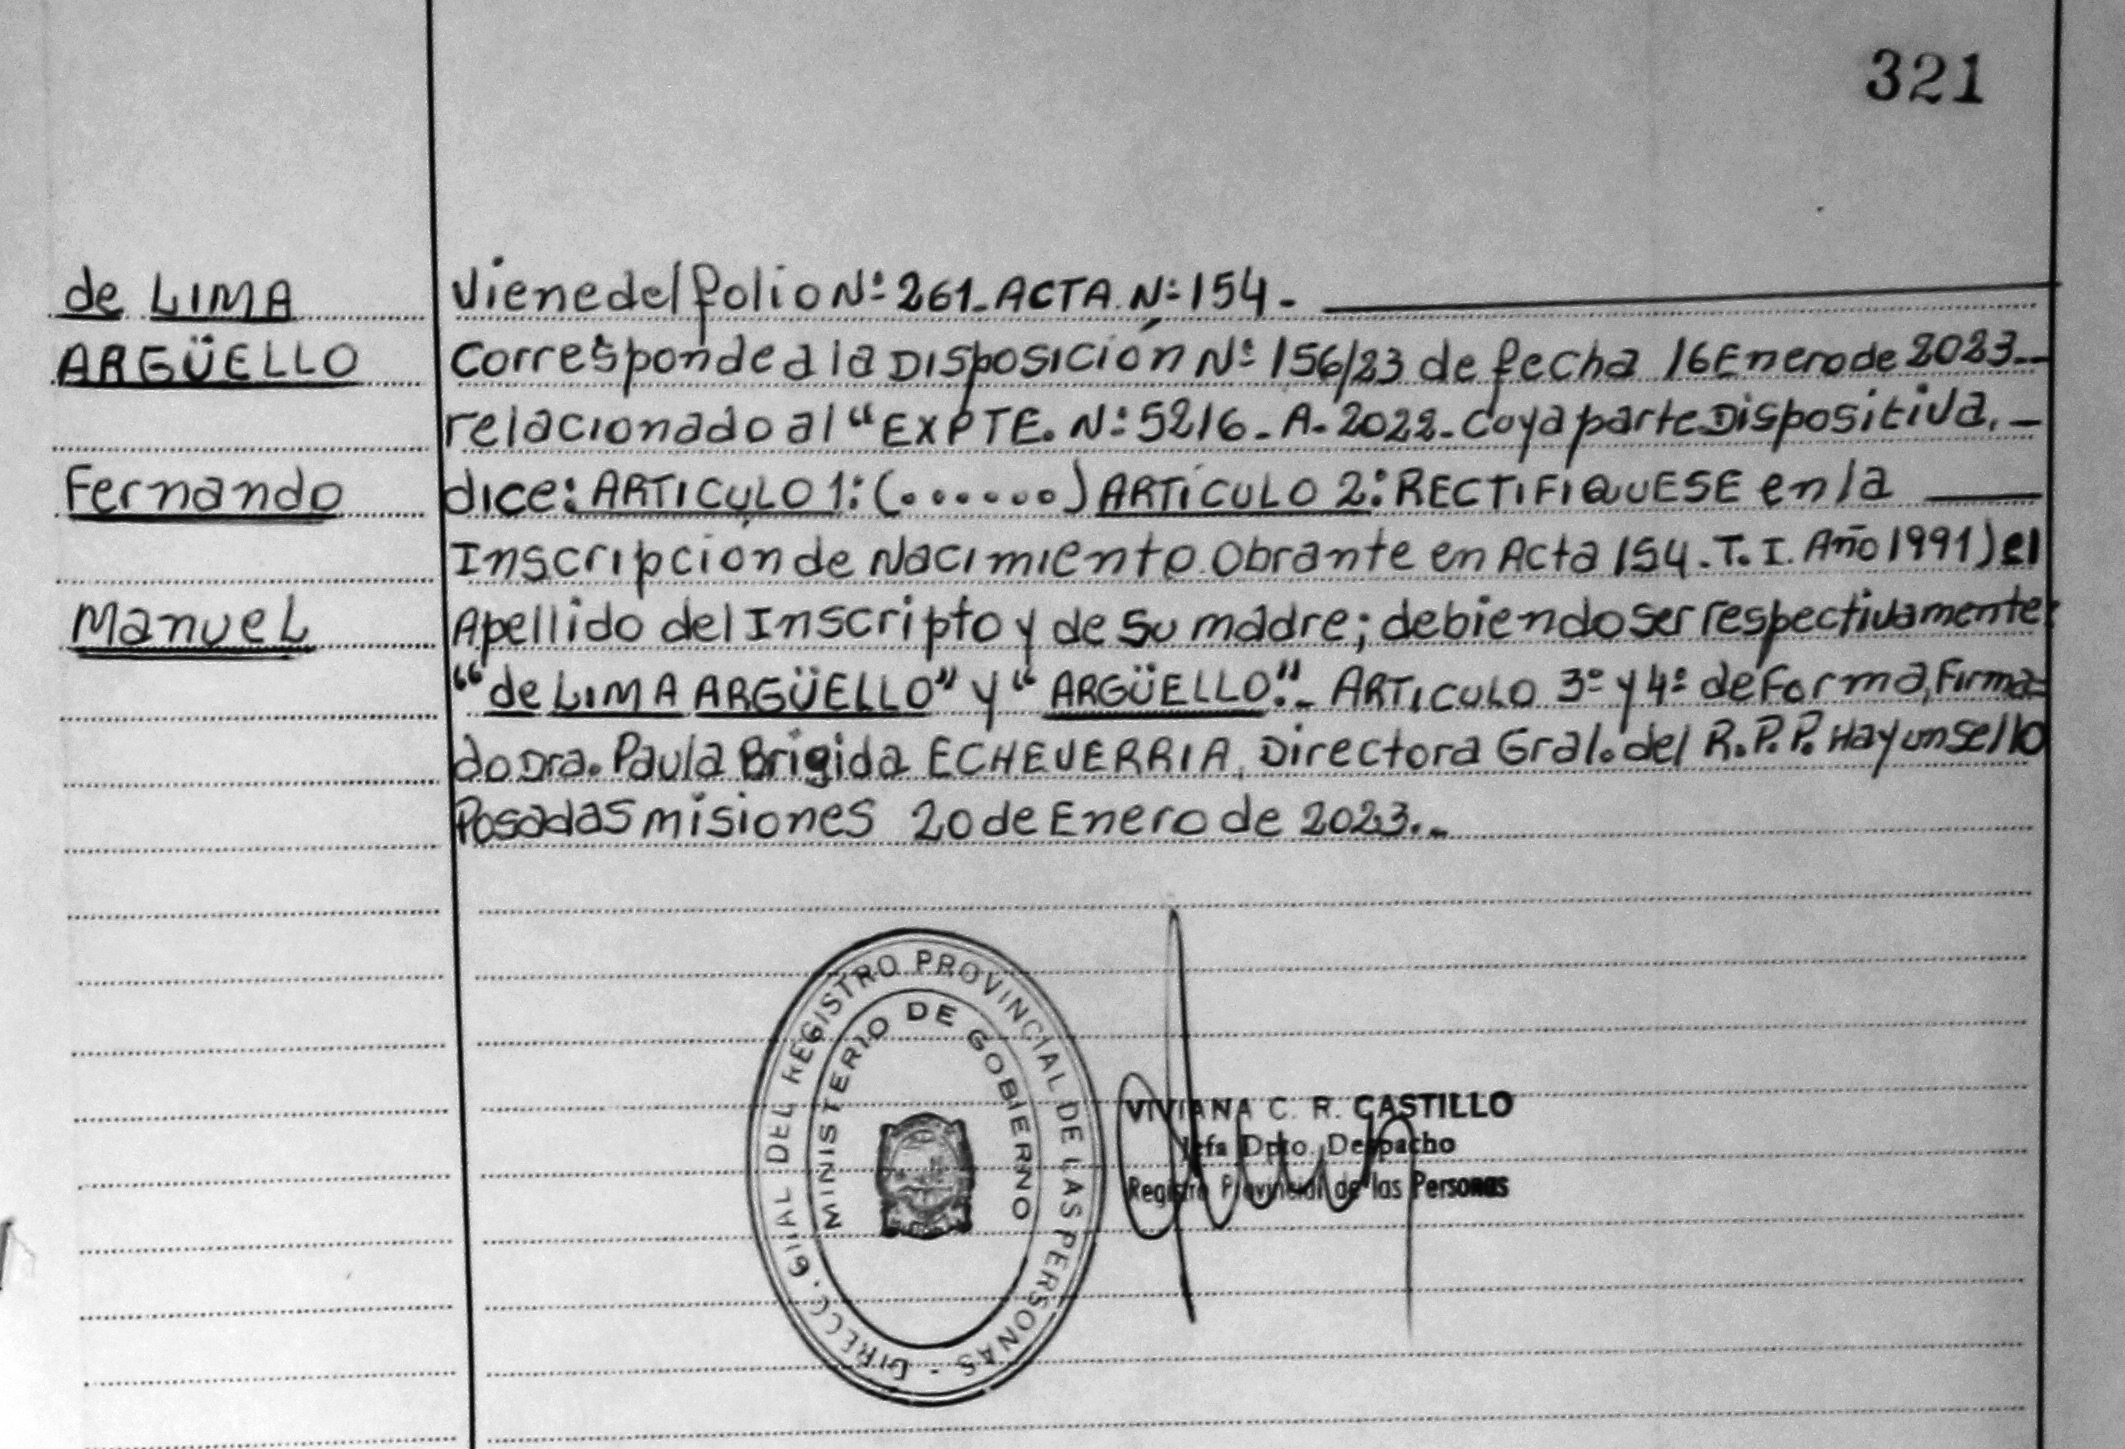 321
de LIMA
ARGÜELLO
Fernando
Manuel
Viene del folio Nº 261. ACTA Nº 154 -
Corresponde a la DISPOSICIÓN Nº 156/23 de fecha 16 Enero de 2023.-
relacionado al "EXPTE. Nº 5216 - A - 2022 - Cuya parte Dispositiva. -
dice: ARTICULO 1: (......) ARTÍCULO 2: RECTIFIQUESE en la
Inscripción de Nacimiento Obrante en Acta 154 . T. I. Año 1991) el
Apellido del Inscripto y de su madre; debiendo ser respectivamente:
"de LIMA ARGÜELLO" y "ARGÜELLO".- ARTICULO 3º y 4º de Forma, Firma=
do Dra. Paula Brigida ECHEVERRIA, Directora Gral. del R. P. P. Hay un sello
Posadas misiones 20 de Enero de 2023.-
DIRECC. GRAL DEL REGISTRO PROVINCIAL DE LAS PERSONAS -
MINISTERIO DE GOBIERNO
VIVIANA C. R. CASTILLO
Jefa Dpto. Despacho
Registro Provincial de las Personas